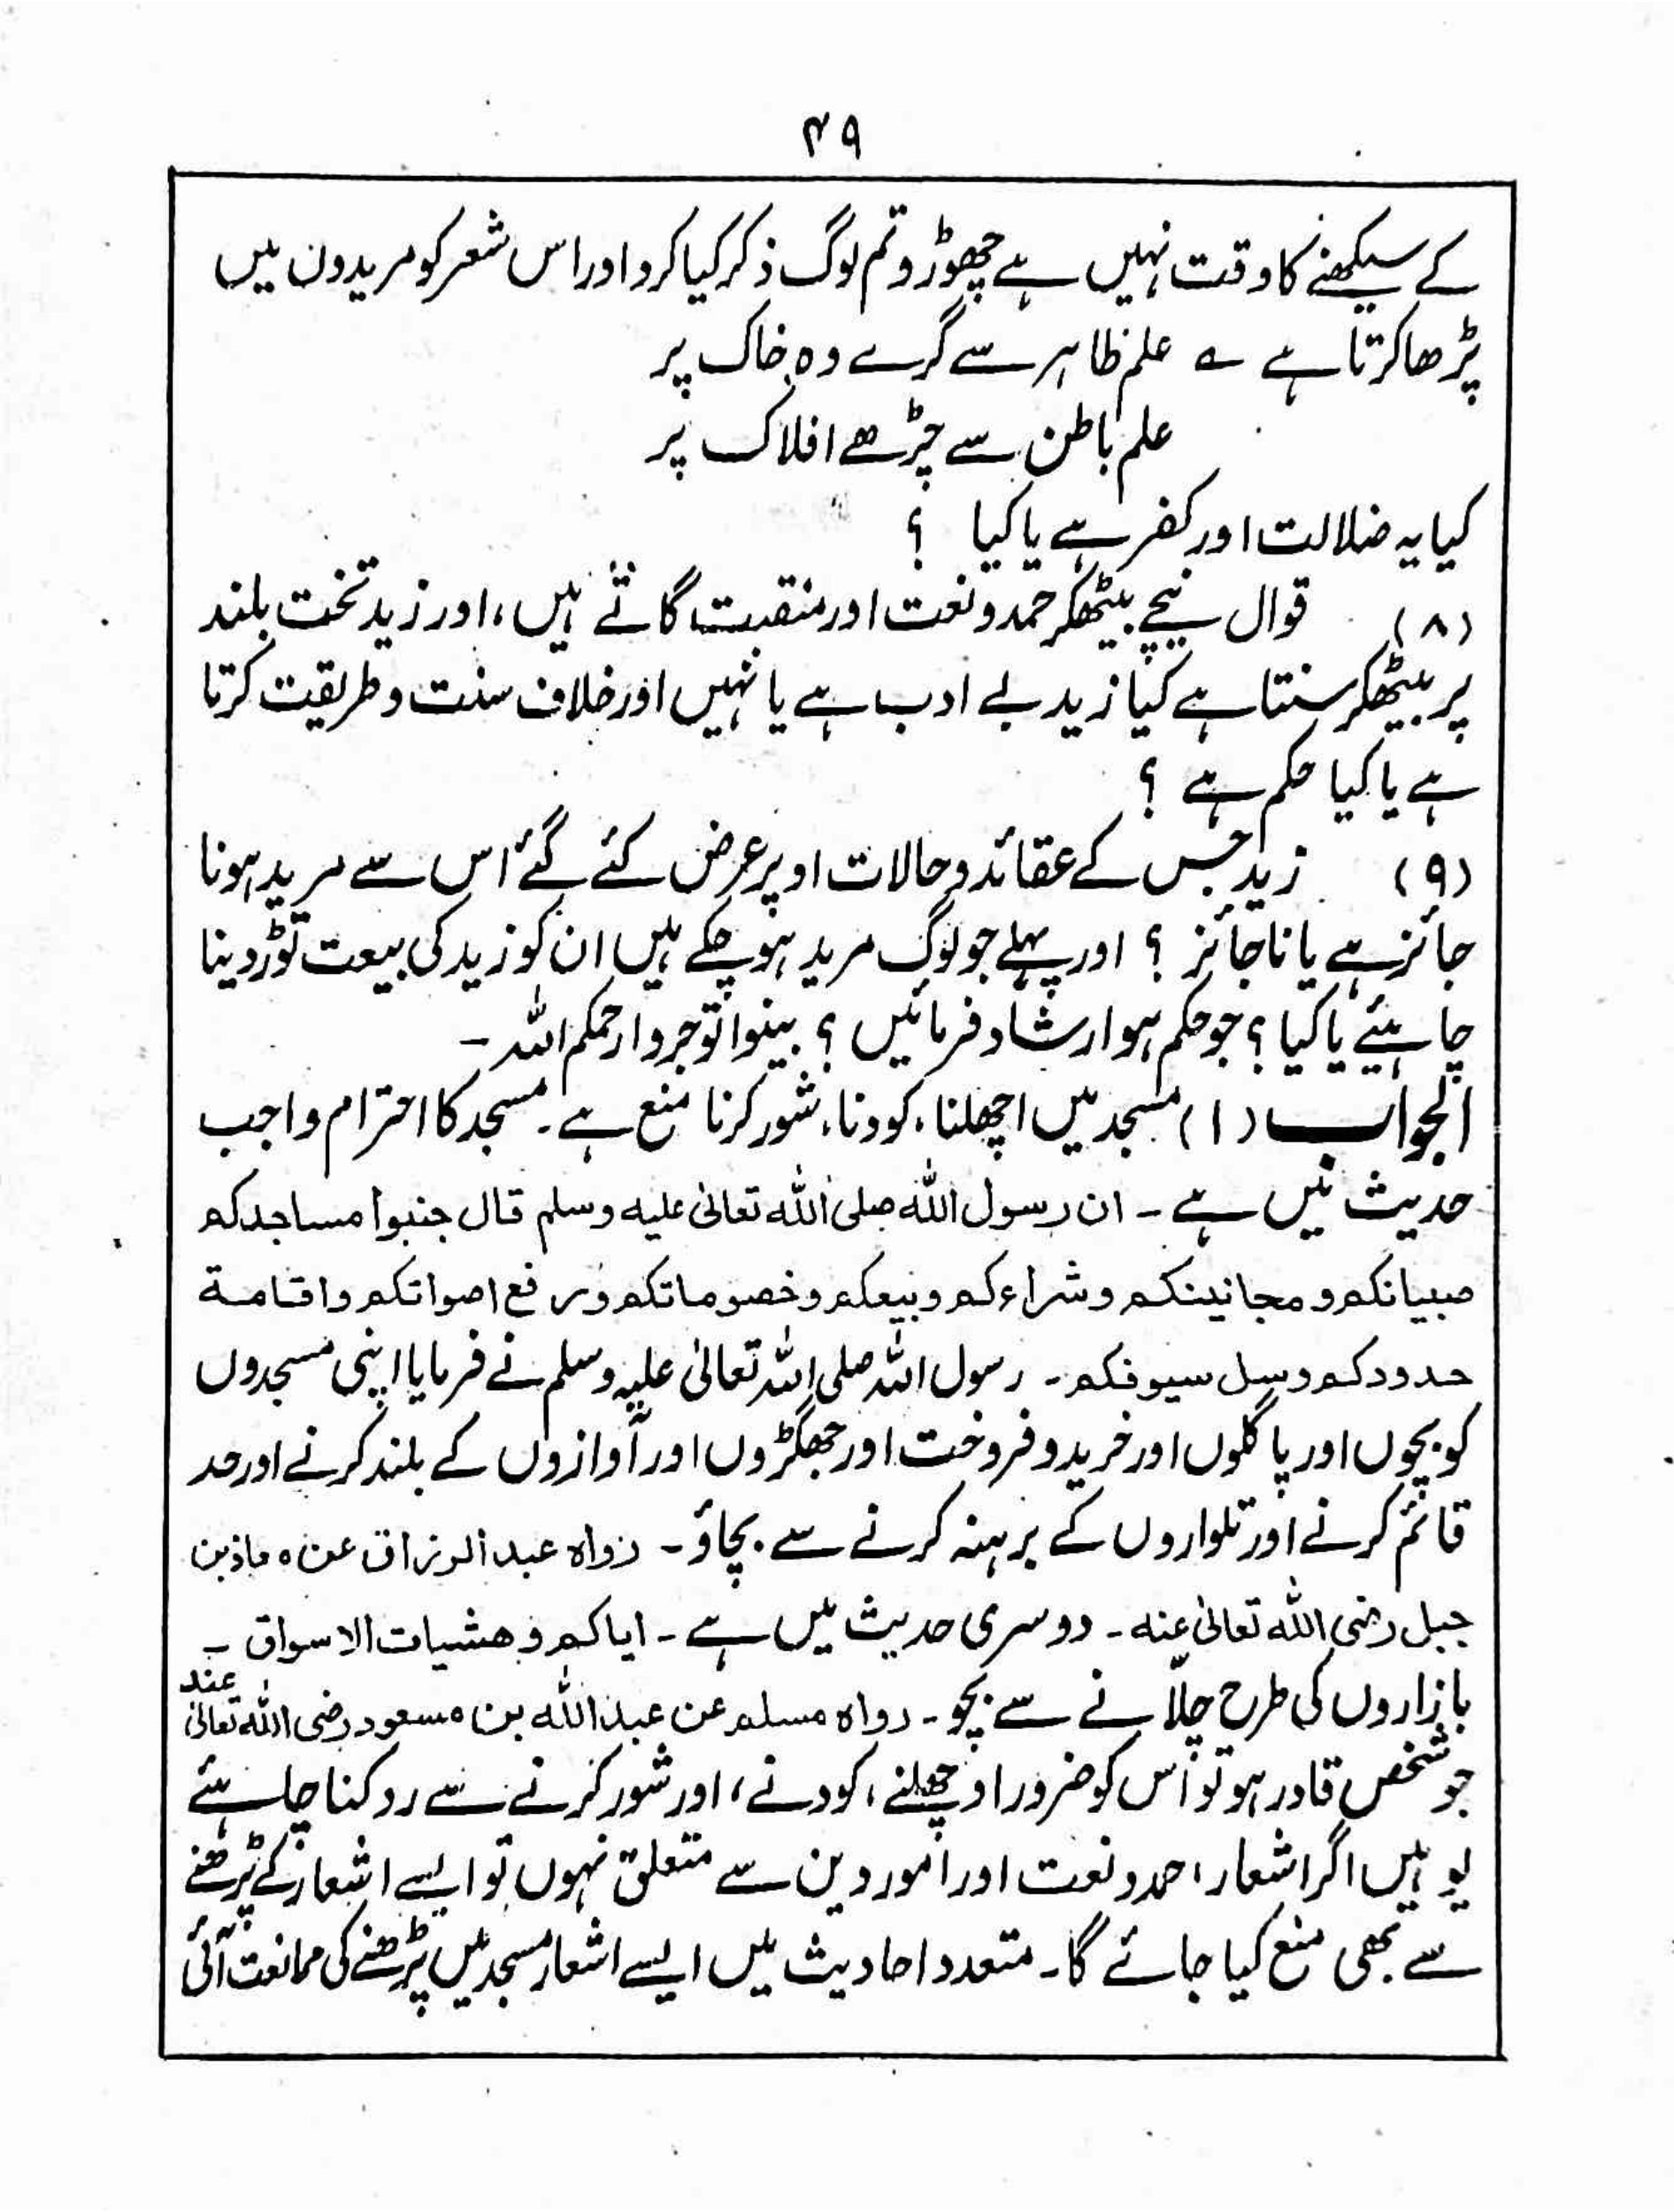 ۴۹
کے سیکھنے کا وقت نہیں ہے چھوڑو تم لوگ ذکر کیا کرو اور اس شعر کو مریدون میں
پڑھا کرتا ہے ؎ علم ظاہر سے گرے وہ خاک پر
علم باطن سے چڑھے افلاک پر
کیا یہ ضلالت اور کفر ہے یا کیا ؟
(۸) قوال نیچے بیٹھکر حمد و نعت اور منقبت گاتے ہیں، اور زید تخت بلند
پر بیٹھکر سنتا ہے کیا زید بے ادب ہے یا نہیں اور خلاف سنت و طریقت کرتا
ہے یا کیا حکم ہے ؟
(۹) زید جس کے عقائد و حالات اوپر عرض کئے گئے اس سے مرید ہونا
جائز ہے یا ناجائز ؟ اور پہلے جو لوگ مرید ہو چکے ہیں ان کو زید کی بیعت توڑ دینا
چاہئیے یا کیا ؟ جو حکم ہو ارشاد فرمائیں ؟ بینوا توجروا رحمکم اللہ ـ
الجواب (۱) مسجد میں اچھلنا، کودنا، شور کرنا منع ہے۔ مسجد کا احترام واجب
حدیث میں ہے ـ ان رسول اللہ صلی اللہ تعالیٰ علیہ وسلم قال جنبوا مساجدکم
صبیانکم و مجانینکم و شراءکم و بیعکم و خصوماتکم و رفع اصواتکم و اقامة
حدودکم و سل سیوفکم ۔ رسول اللہ صلی اللہ تعالیٰ علیہ وسلم نے فرمایا اپنی مسجدوں
کو بچوں اور پاگلوں اور خرید و فروخت اور جھگڑوں اور آوازوں کے بلند کرنے اور حد
قائم کرنے اور تلواروں کے برہنہ کرنے سے بچاؤ ۔ رواہ عبد الرزاق عن معاذ بن
جبل رضی اللہ تعالیٰ عنہ ۔ دوسری حدیث میں ہے ۔ ایاکم و ھشیات الاسواق ـ
بازاروں کی طرح چلّانے سے بچو ۔ رواہ مسلم عن عبد اللہ بن مسعود رضی اللہ تعالیٰ عنہ
جو شخص قادر ہو تو اس کو ضرور اوچھلنے، کودنے، اور شور کرنے سے روکنا چاہئے
یو ہیں اگر اشعار، حمد و نعت اور امور دین سے متعلق نہوں تو ایسے اشعار کے پڑھنے
سے بھی منع کیا جائے گا۔ متعدد احادیث میں ایسے اشعار مسجد میں پڑھنے کی ممانعت آئی